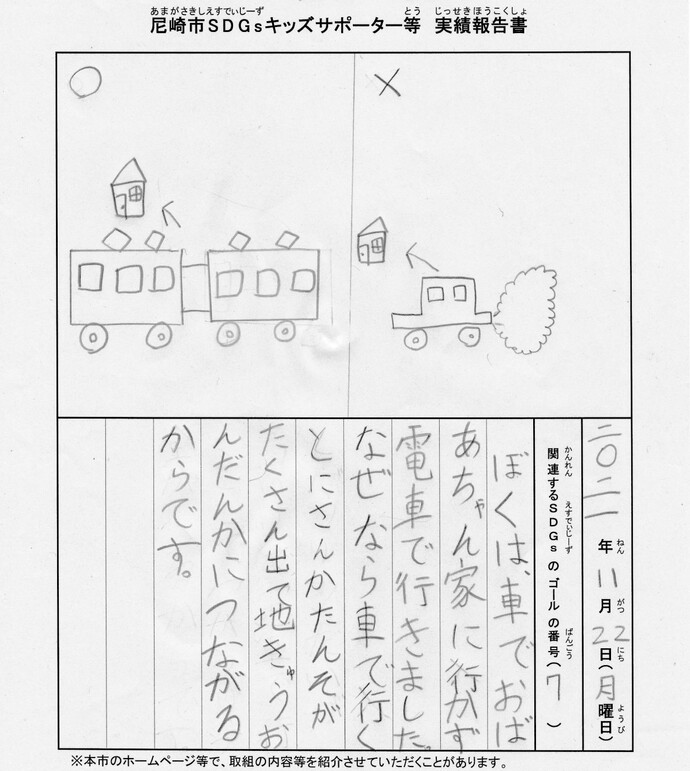 あまがさきしえすでぃじーず とう じっせきほうこくしょ
尼崎市SDGsキッズサポーター等 実績報告書
二〇二一年ねん11月がつ22日にち(月曜日ようび)
関連かんれんするSDGsえすでぃじーずのゴールの番号ばんごう(7)
ぼくは、車でおば
あちゃん家に行かず
電車で行きました。
なぜなら車で行く
とにさんかたんそが
たくさん出て地きゅうお
んだんかにつながる
からです。
※本市のホームページ等で、取組の内容等を紹介させていただくことがあります。